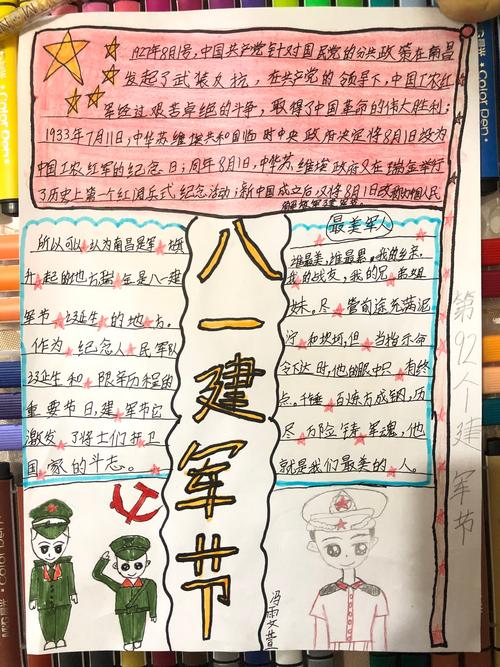 1927年8月1号,中国共产党针对国民党的分共政策在南昌
发起了武装反抗,在共产党的领导下,中国工农红
军经过艰苦卓绝的斗争,取得了中国革命的伟大胜利;
1933年7月11日,中华苏维埃共和国临时中央政府决定将8月1日改为
中国工农红军的纪念日;同年8月1日,中华苏维埃政府又在瑞金举行
了历史上第一个红阅兵式纪念活动;新中国成立之后又将8月1日改称为中国人民
解放军建军节
所以可以认为南昌是军旗
升起的地方瑞金是八一建
军节诞生的地方。
作为纪念人民军队
诞生和限辛历程的
重要节日,建军节它
激发了将士们扞卫
国家的斗志。
八一建军节
最美军人
谁最美,谁最累。我的乡亲,
我的战友,我的兄弟姐
妹。尽管前途充满泥
泞和坎坷,但当指示命
令下达时,他的眼中只有终
点。千锤百炼方成钢,历
尽万险铸军魂,他
就是我们最美的人。
第92个建军节